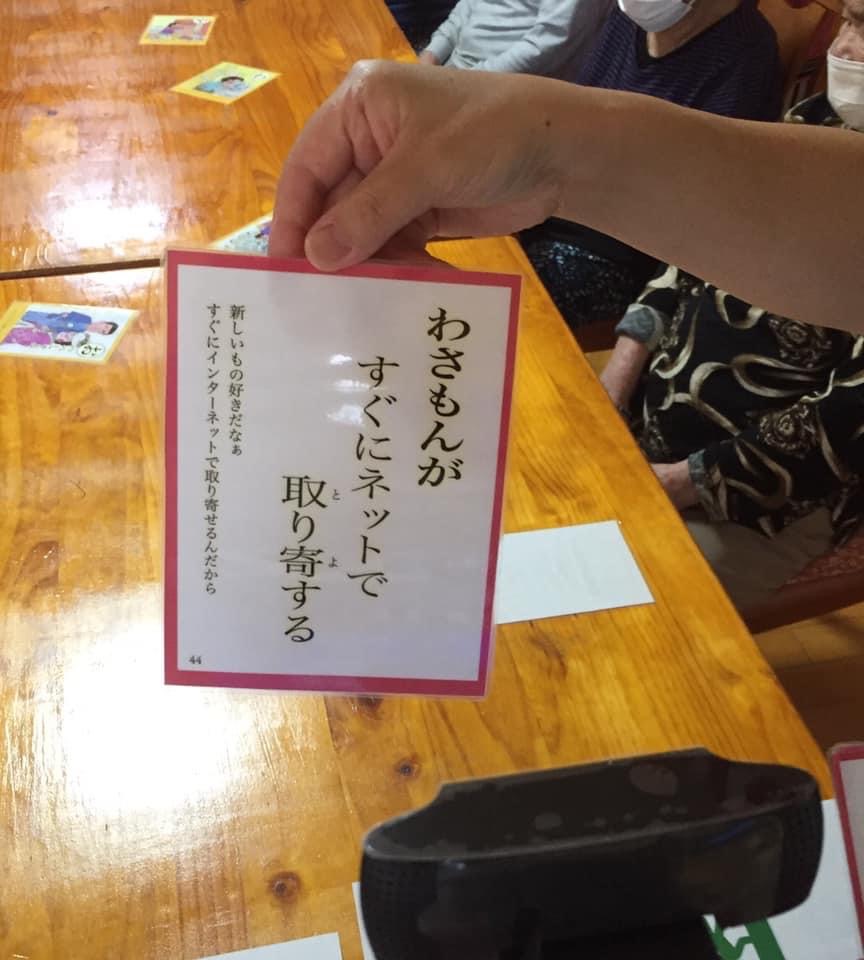 わさもんが
すぐにネットで
取り寄する
と
よ
新しいもの好きだなぁ
すぐにインターネットで取り寄せるんだから
44